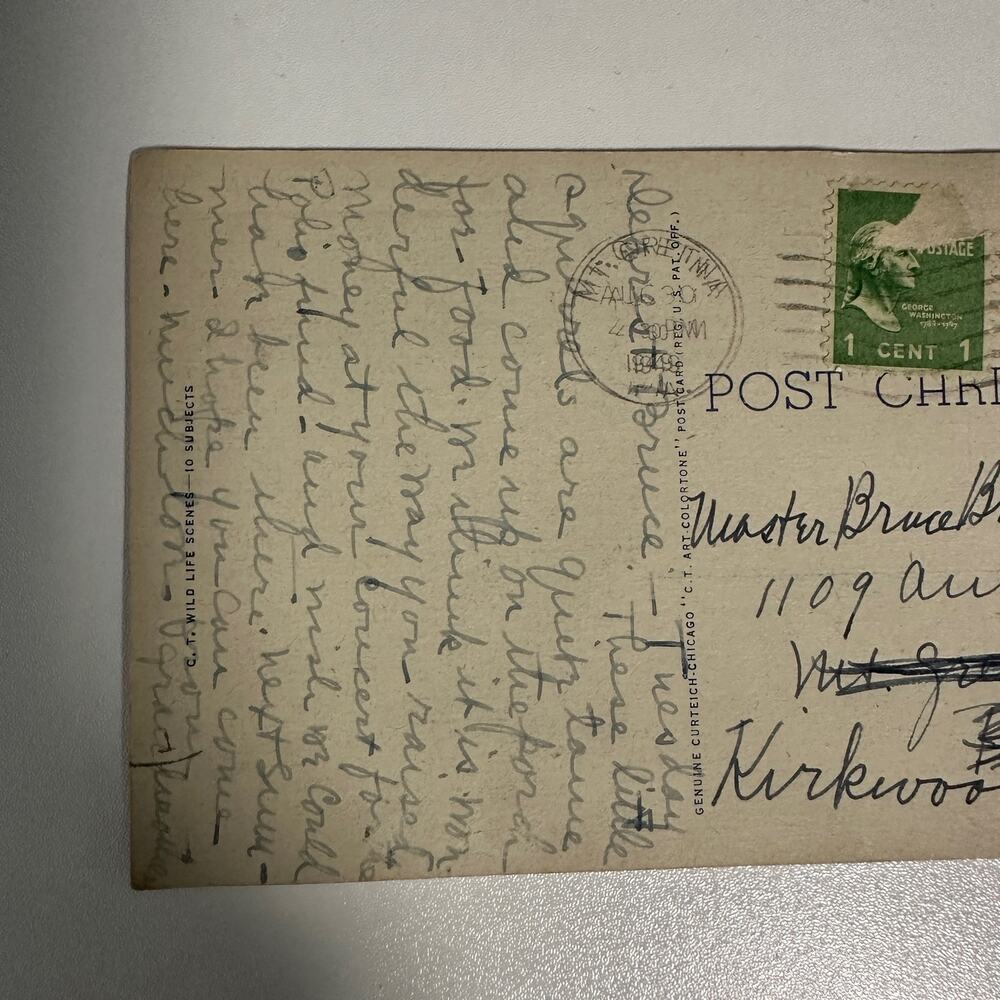 Tuesday
Dear Bruce - These little
squirrels are quite tame
and come up on the porch
for food. We think it is won-
derful the way you raised
money at your concert for
Polio fund - and wish we could
have been there. Next sum-
mer - I hope you can come
here - much love -
C. T. WILD LIFE SCENES—10 SUBJECTS
GENUINE CURTEICH-CHICAGO "C. T. ART-COLORTONE" POST CARD (REG. U. S. PAT. OFF.)
MT. GRETNA
AUG 30
PM
POSTAGE
GEORGE
WASHINGTON
1789-1797
1 CENT 1
POST
Master Bruce
1109
Mt.